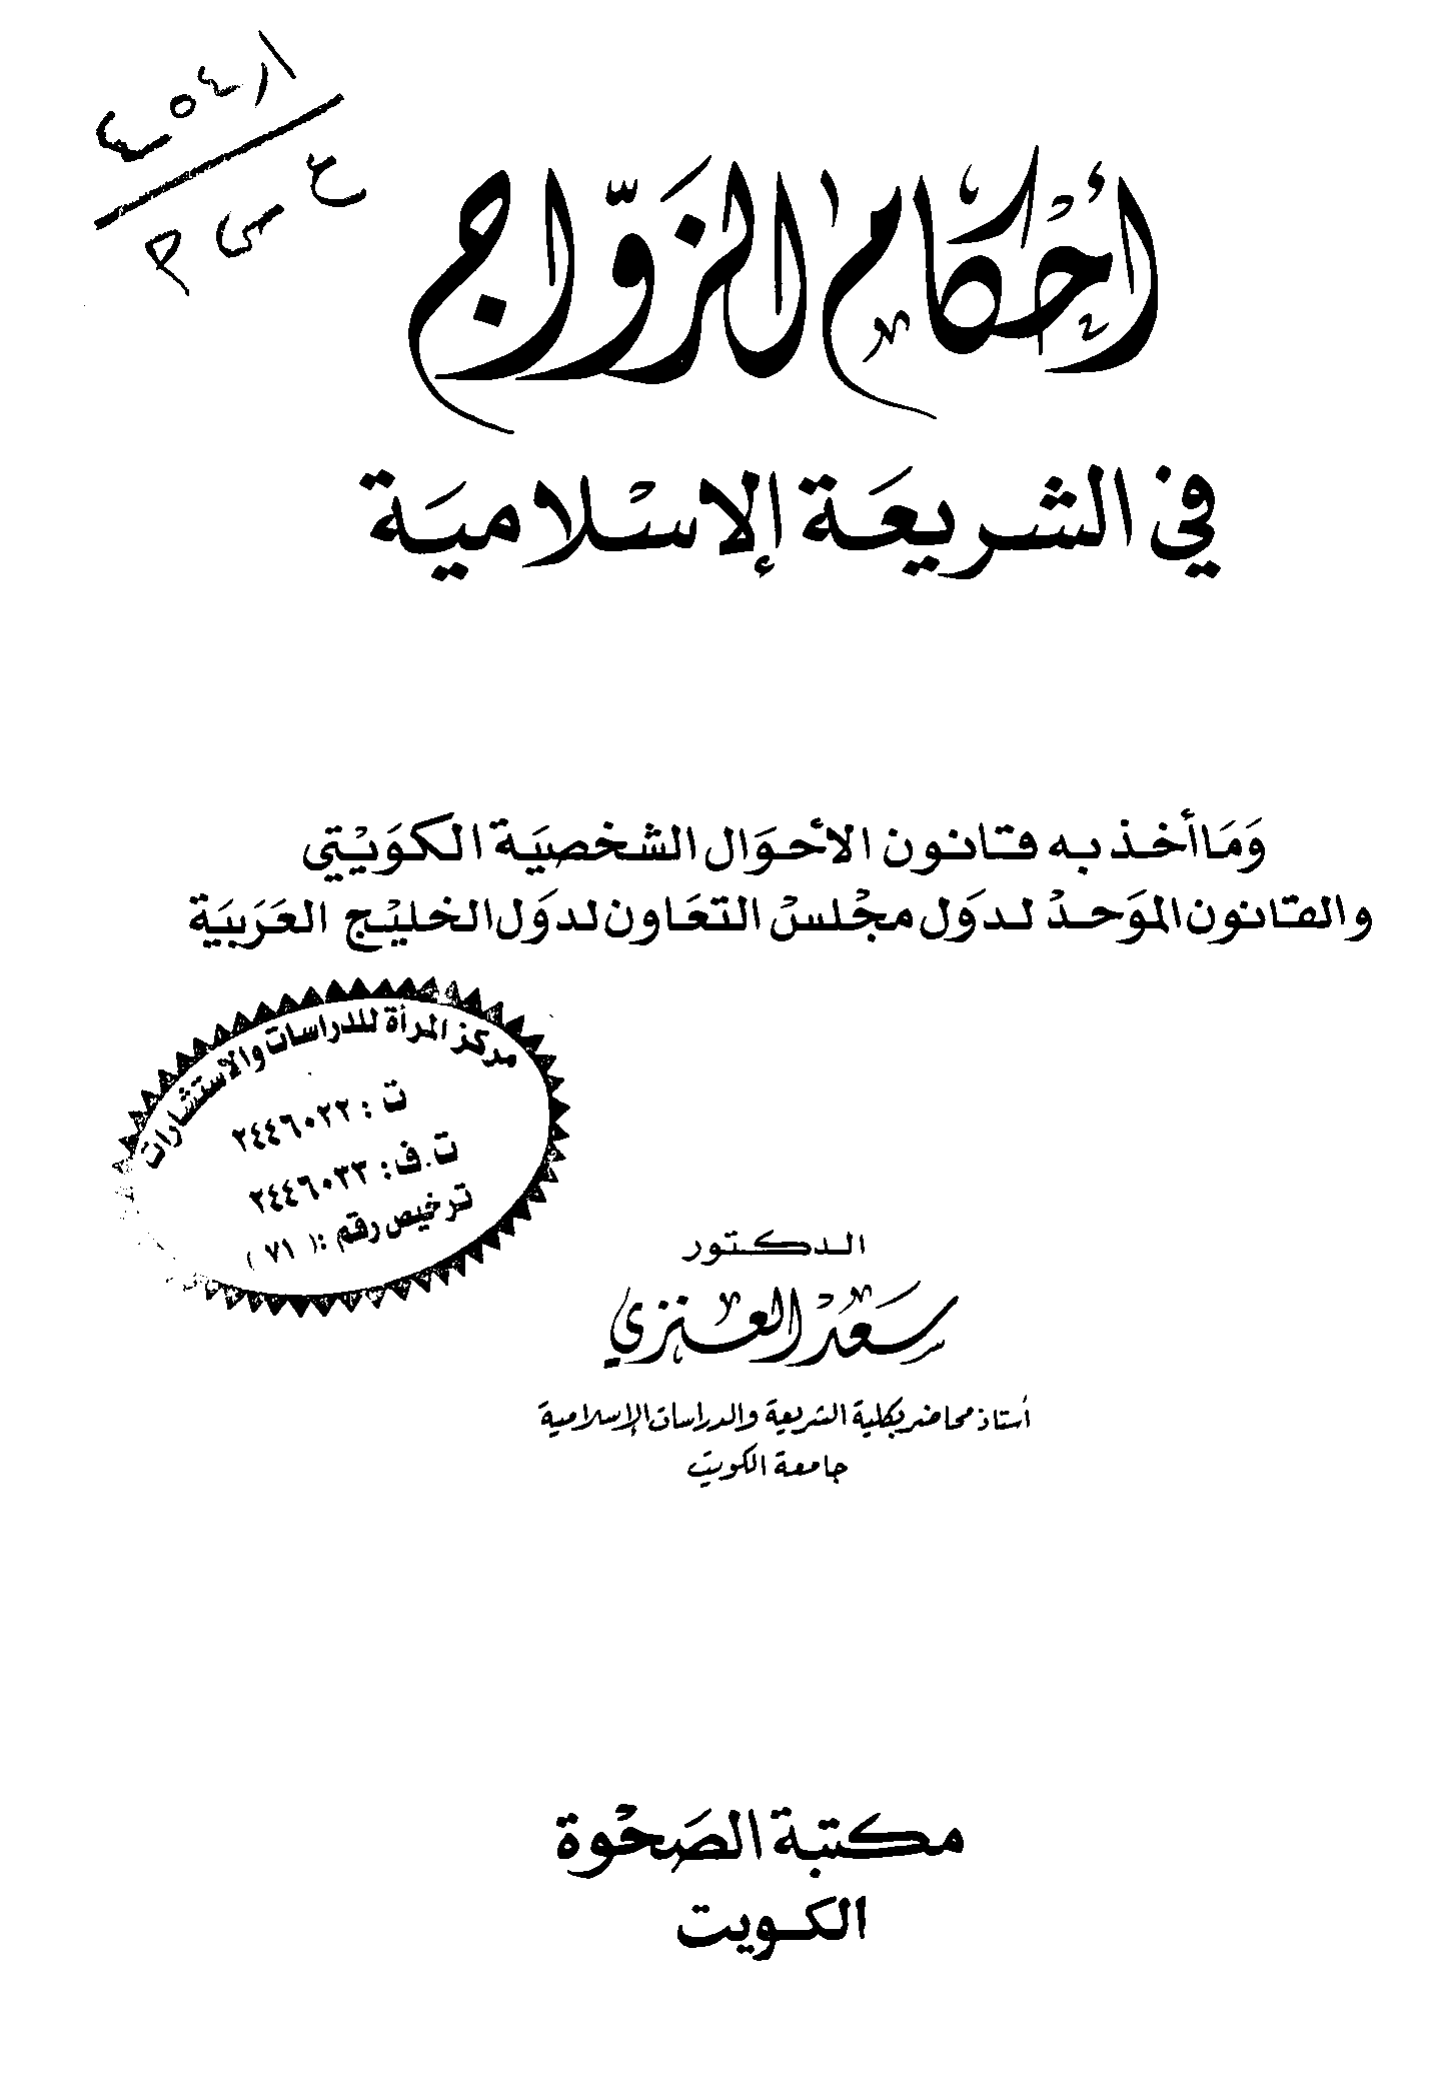 ٤٥٤ر١
ع س م
أحكام الزوّاج
في الشريعَة الإسْلاميَة
وَمَا أخذ به قانون الأحوَال الشخصيَة الكوَيْتي
والقانون الموَحدْ لدوَل مجْلسْ التعَاون لدوَل الخليْج العَرَبيَة
مركز المرأة للدراسات والاستشارات
ت : ٢٤٤٦٠٢٢
ت.ف: ٢٤٤٦٠٣٣
ترخيص رقم :( ٧١ )
الدكتور
سَعدْ العنزي
أستاذ محاضر بكلية الشريعة والدراسات الإسلامية
جامعة الكويت
مكتبة الصَحْوة
الكويت